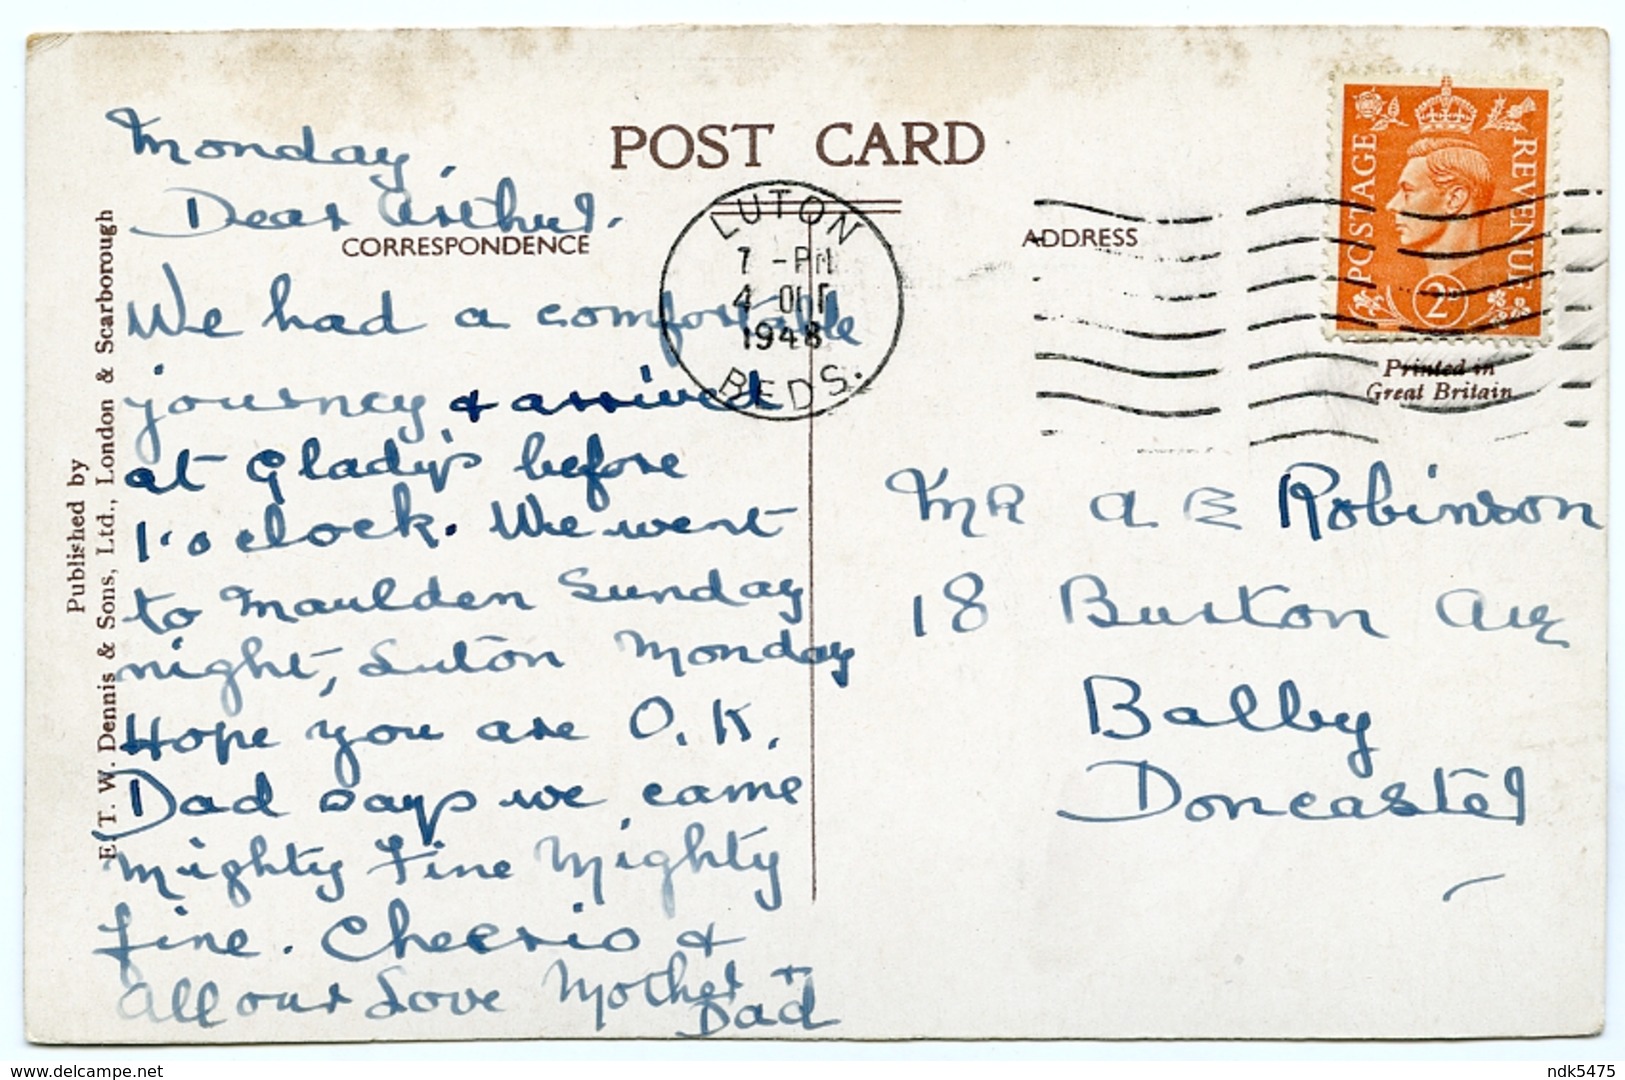 POST CARD
CORRESPONDENCE
ADDRESS
Published by
E. T. W. Dennis & Sons, Ltd., London & Scarborough
Monday.
Dear Arthur.
We had a comfortable
journey & arrived
at Gladys before
1.o clock. We went
to Maulden Sunday
night, Luton Monday
Hope you are O.K.
Dad says we came
Mighty Fine Mighty
fine. Cheerio &
All our Love Mother +
Dad
LUTON
7 - PM
4 OCT
1948
BEDS.
POSTAGE
REVENUE
2D
Printed in
Great Britain
MR A E Robinson
18 Burton Ave
Balby
Doncaster
www.delcampe.net
ndk5475